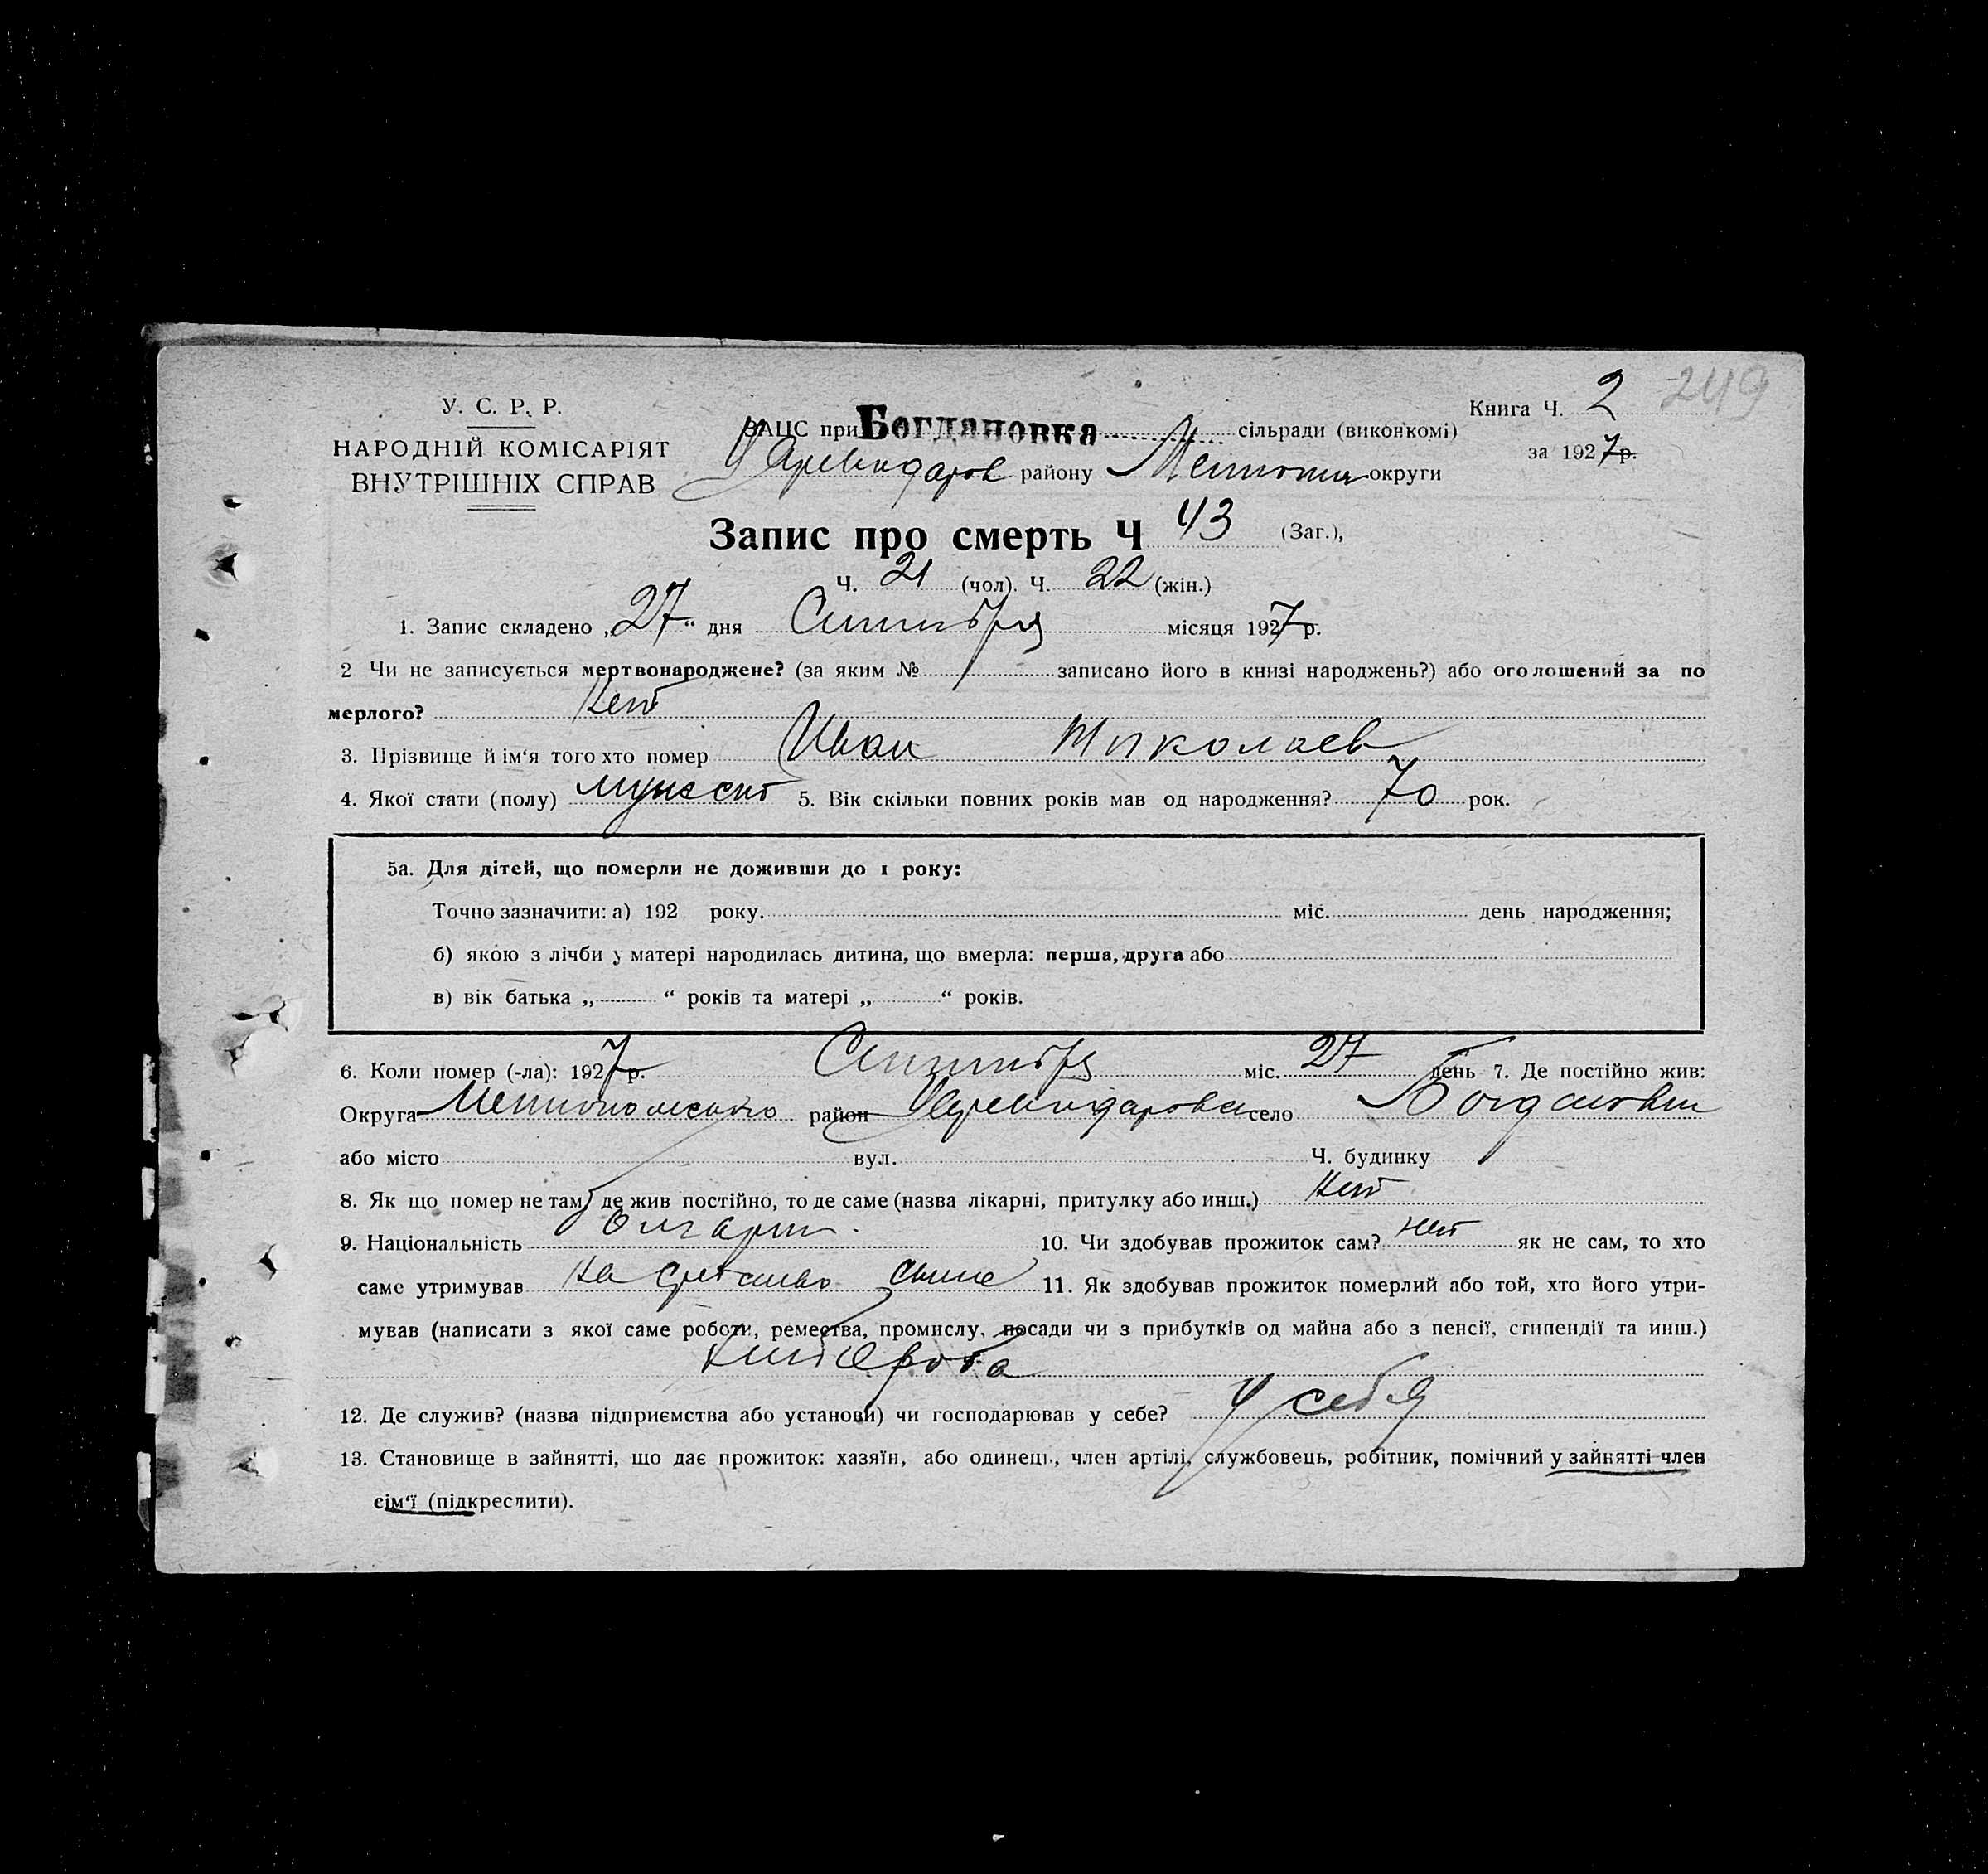 249
У. С. Р. Р.
НАРОДНІЙ КОМІСАРІЯТ
ВНУТРІШНІХ СПРАВ
Книга Ч. 2
за 1927 р.
ЗАЦС при Богдановка сільради (виконкомі)
району округи
Запис про смерть Ч 43 (Заг.),
Ч. 21 (чол). Ч. 22 (жін.)
1. Запис складено „27“ дня Сентября місяця 1927 р.
2 Чи не записується мертвонароджене? (за яким № записано його в книзі народжень?) або оголошений за по
мерлого? Нет
3. Прізвище й ім‘я того хто помер Иван Николаев
4. Якої стати (полу) 5. Вік скільки повних років мав од народження? 70 рок.
5а. Для дітей, що померли не доживши до 1 року:
Точно зазначити: а) 192 року. міс. день народження;
б) якою з лічби у матері народилась дитина, що вмерла: перша, друга або
в) вік батька „ “ років та матері „ “ років.
6. Коли помер (-ла): 1927 р. Сентября міс. 27 день 7. Де постійно жив:
Округа район село
або місто вул. Ч. будинку
8. Як що помер не там, де жив постійно, то де саме (назва лікарні, притулку або инш.) Нет
9. Національність болгарин 10. Чи здобував прожиток сам? нет як не сам, то хто
саме утримував на 11. Як здобував прожиток померлий або той, хто його утри-
мував (написати з якої саме роботи, ремества, промислу, посади чи з прибутків од майна або з пенсії, стипендії та инш.)
хлебороба
12. Де служив? (назва підприємства або установи) чи господарював у себе? у себя
13. Становище в зайнятті, що дає прожиток: хазяїн, або одинець, член артілі, службовець, робітник, помічний у зайнятті член
сім‘ї (підкреслити).